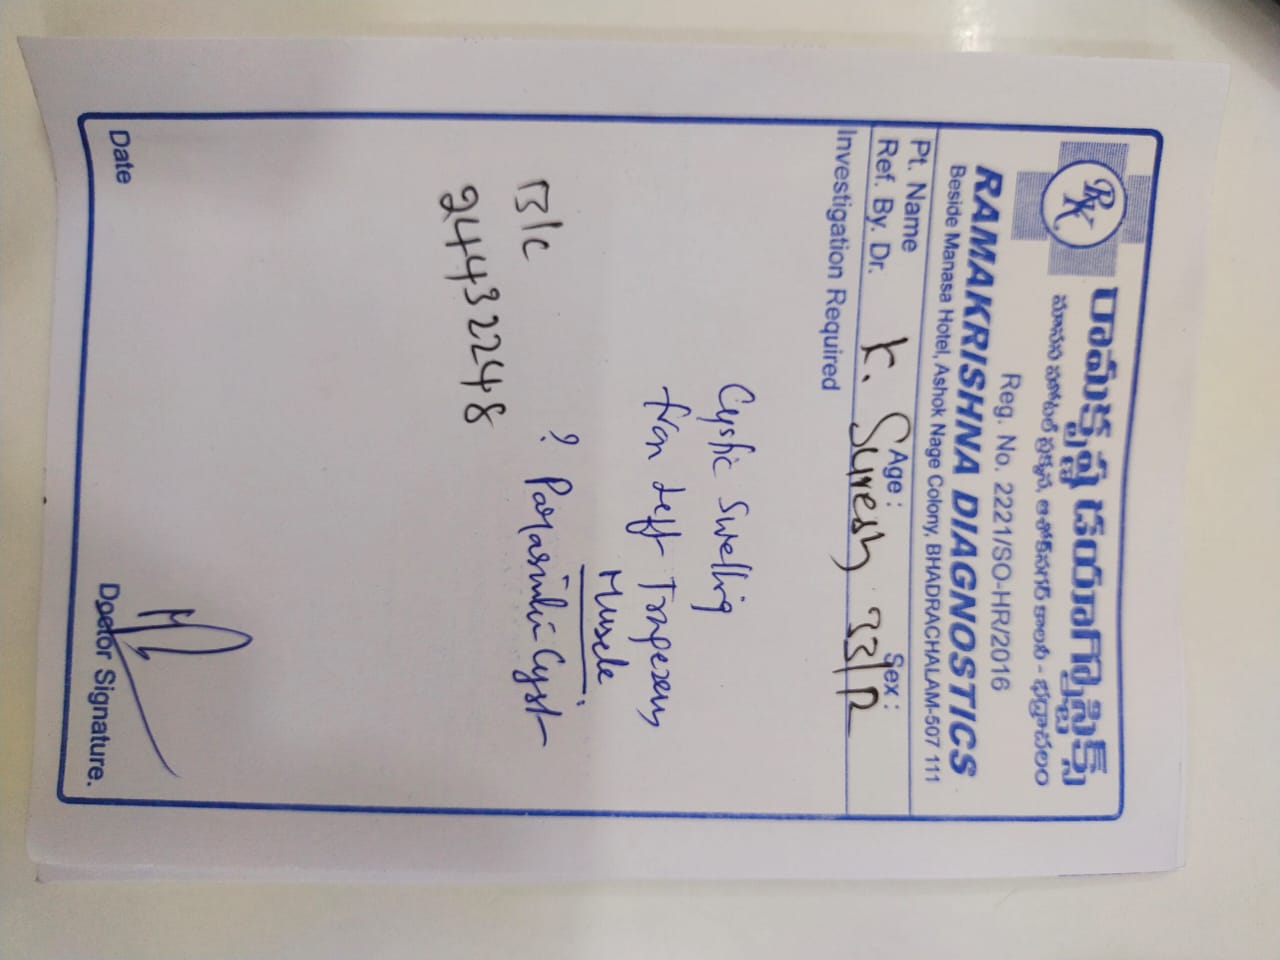 RK
రామకృష్ణ డయాగ్నొస్టిక్స్
మానస హోటల్ ప్రక్కన, అశోక్‌నగర్ కాలనీ - భద్రాచలం
Reg. No. 2221/SO-HR/2016
RAMAKRISHNA DIAGNOSTICS
Beside Manasa Hotel, Ashok Nage Colony, BHADRACHALAM-507 111
Pt. Name Age : Sex :
Ref. By. Dr. K. Suresh 33/M
Investigation Required
Cystic Swelling
from Left Trapezeus
Muscle
? Parasitic Cyst
B/C
24432248
Date Doctor Signature.